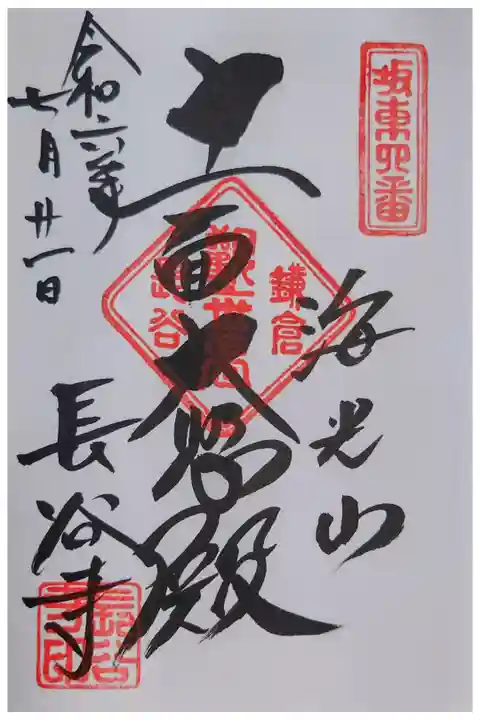 坂東四番
海光山
鎌倉
觀世音
長谷
十一面大悲殿
令和六年
七月廿一日
長谷寺